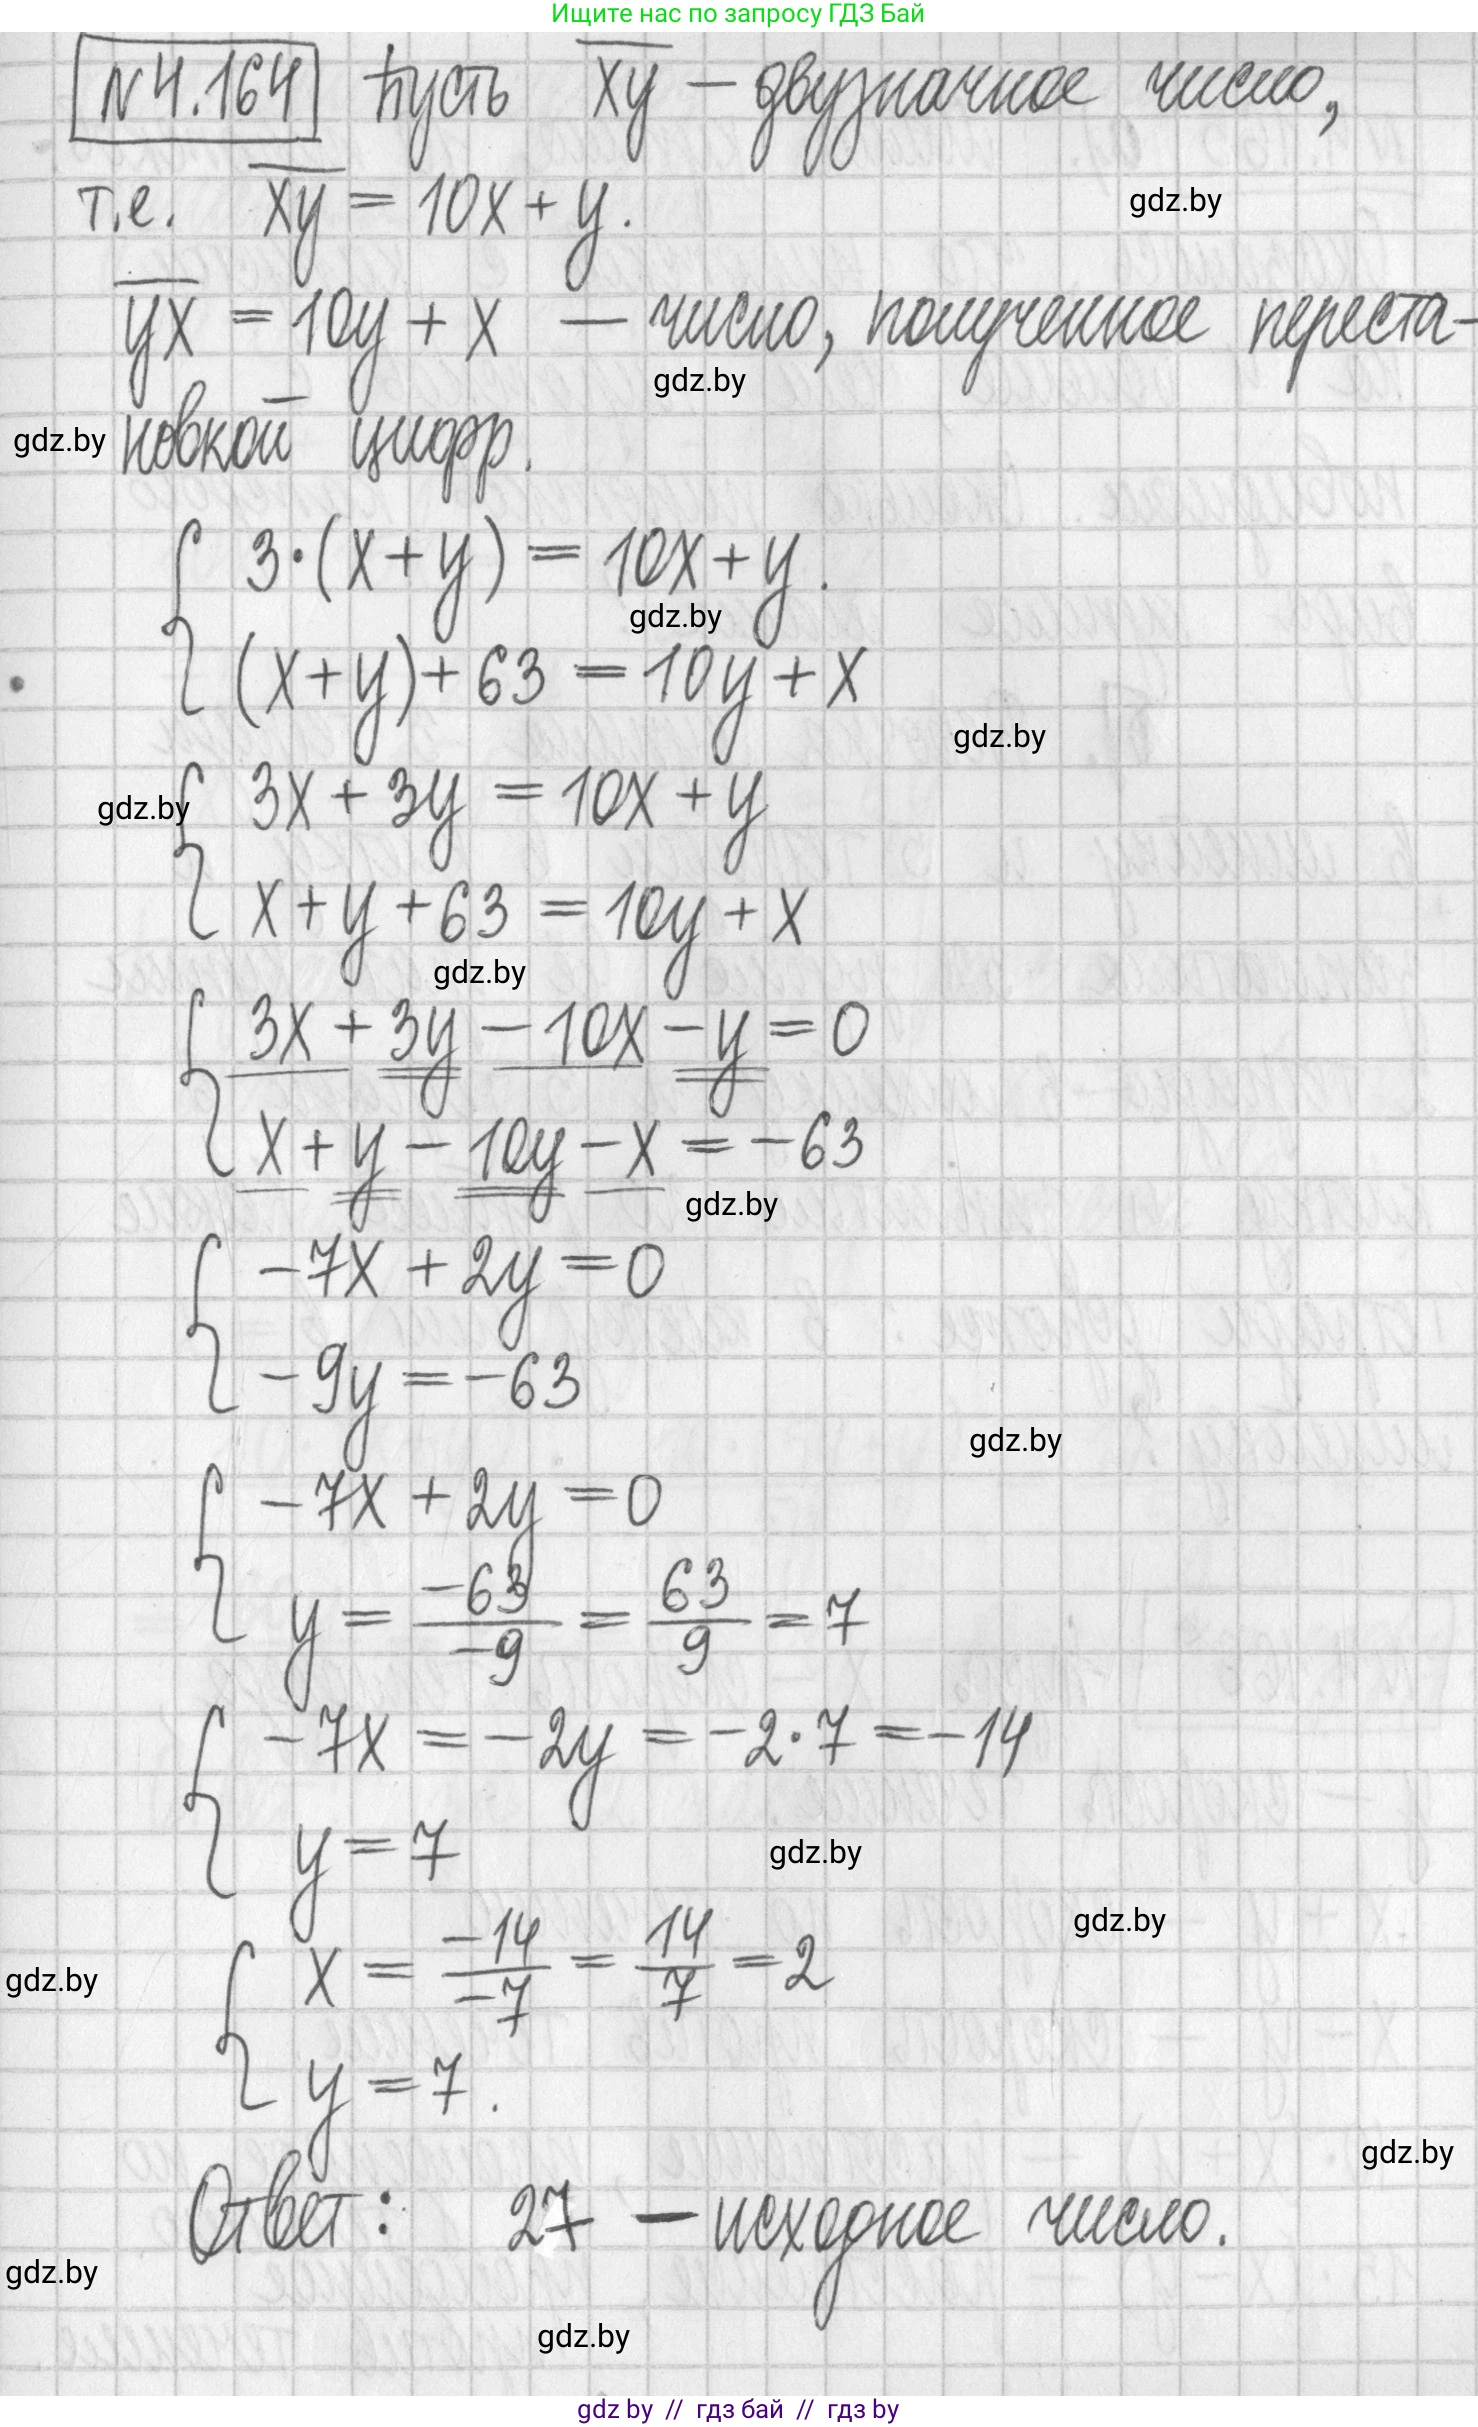 Ищите нас по запросу ГДЗ Бай
№4.164 Пусть x̅y̅ – двузначное число,
gdz.by
т.е. x̅y̅ = 10x + y.
y̅x̅ = 10y + x – число, полученное переста-
gdz.by
gdz.by
новкой цифр.
3·(x+y) = 10x + y.
gdz.by
(x+y) + 63 = 10y + x
gdz.by
3x + 3y = 10x + y
gdz.by
x + y + 63 = 10y + x
gdz.by
3x + 3y – 10x – y = 0
x + y – 10y – x = –63
gdz.by
–7x + 2y = 0
–9y = –63
gdz.by
–7x + 2y = 0
y = –63/–9 = 63/9 = 7
–7x = –2y = –2·7 = –14
y = 7
gdz.by
gdz.by
x = –14/–7 = 14/7 = 2
gdz.by
y = 7.
gdz.by
Ответ: 27 – исходное число.
gdz.by
gdz.by
gdz by // гдз бай // гдз by